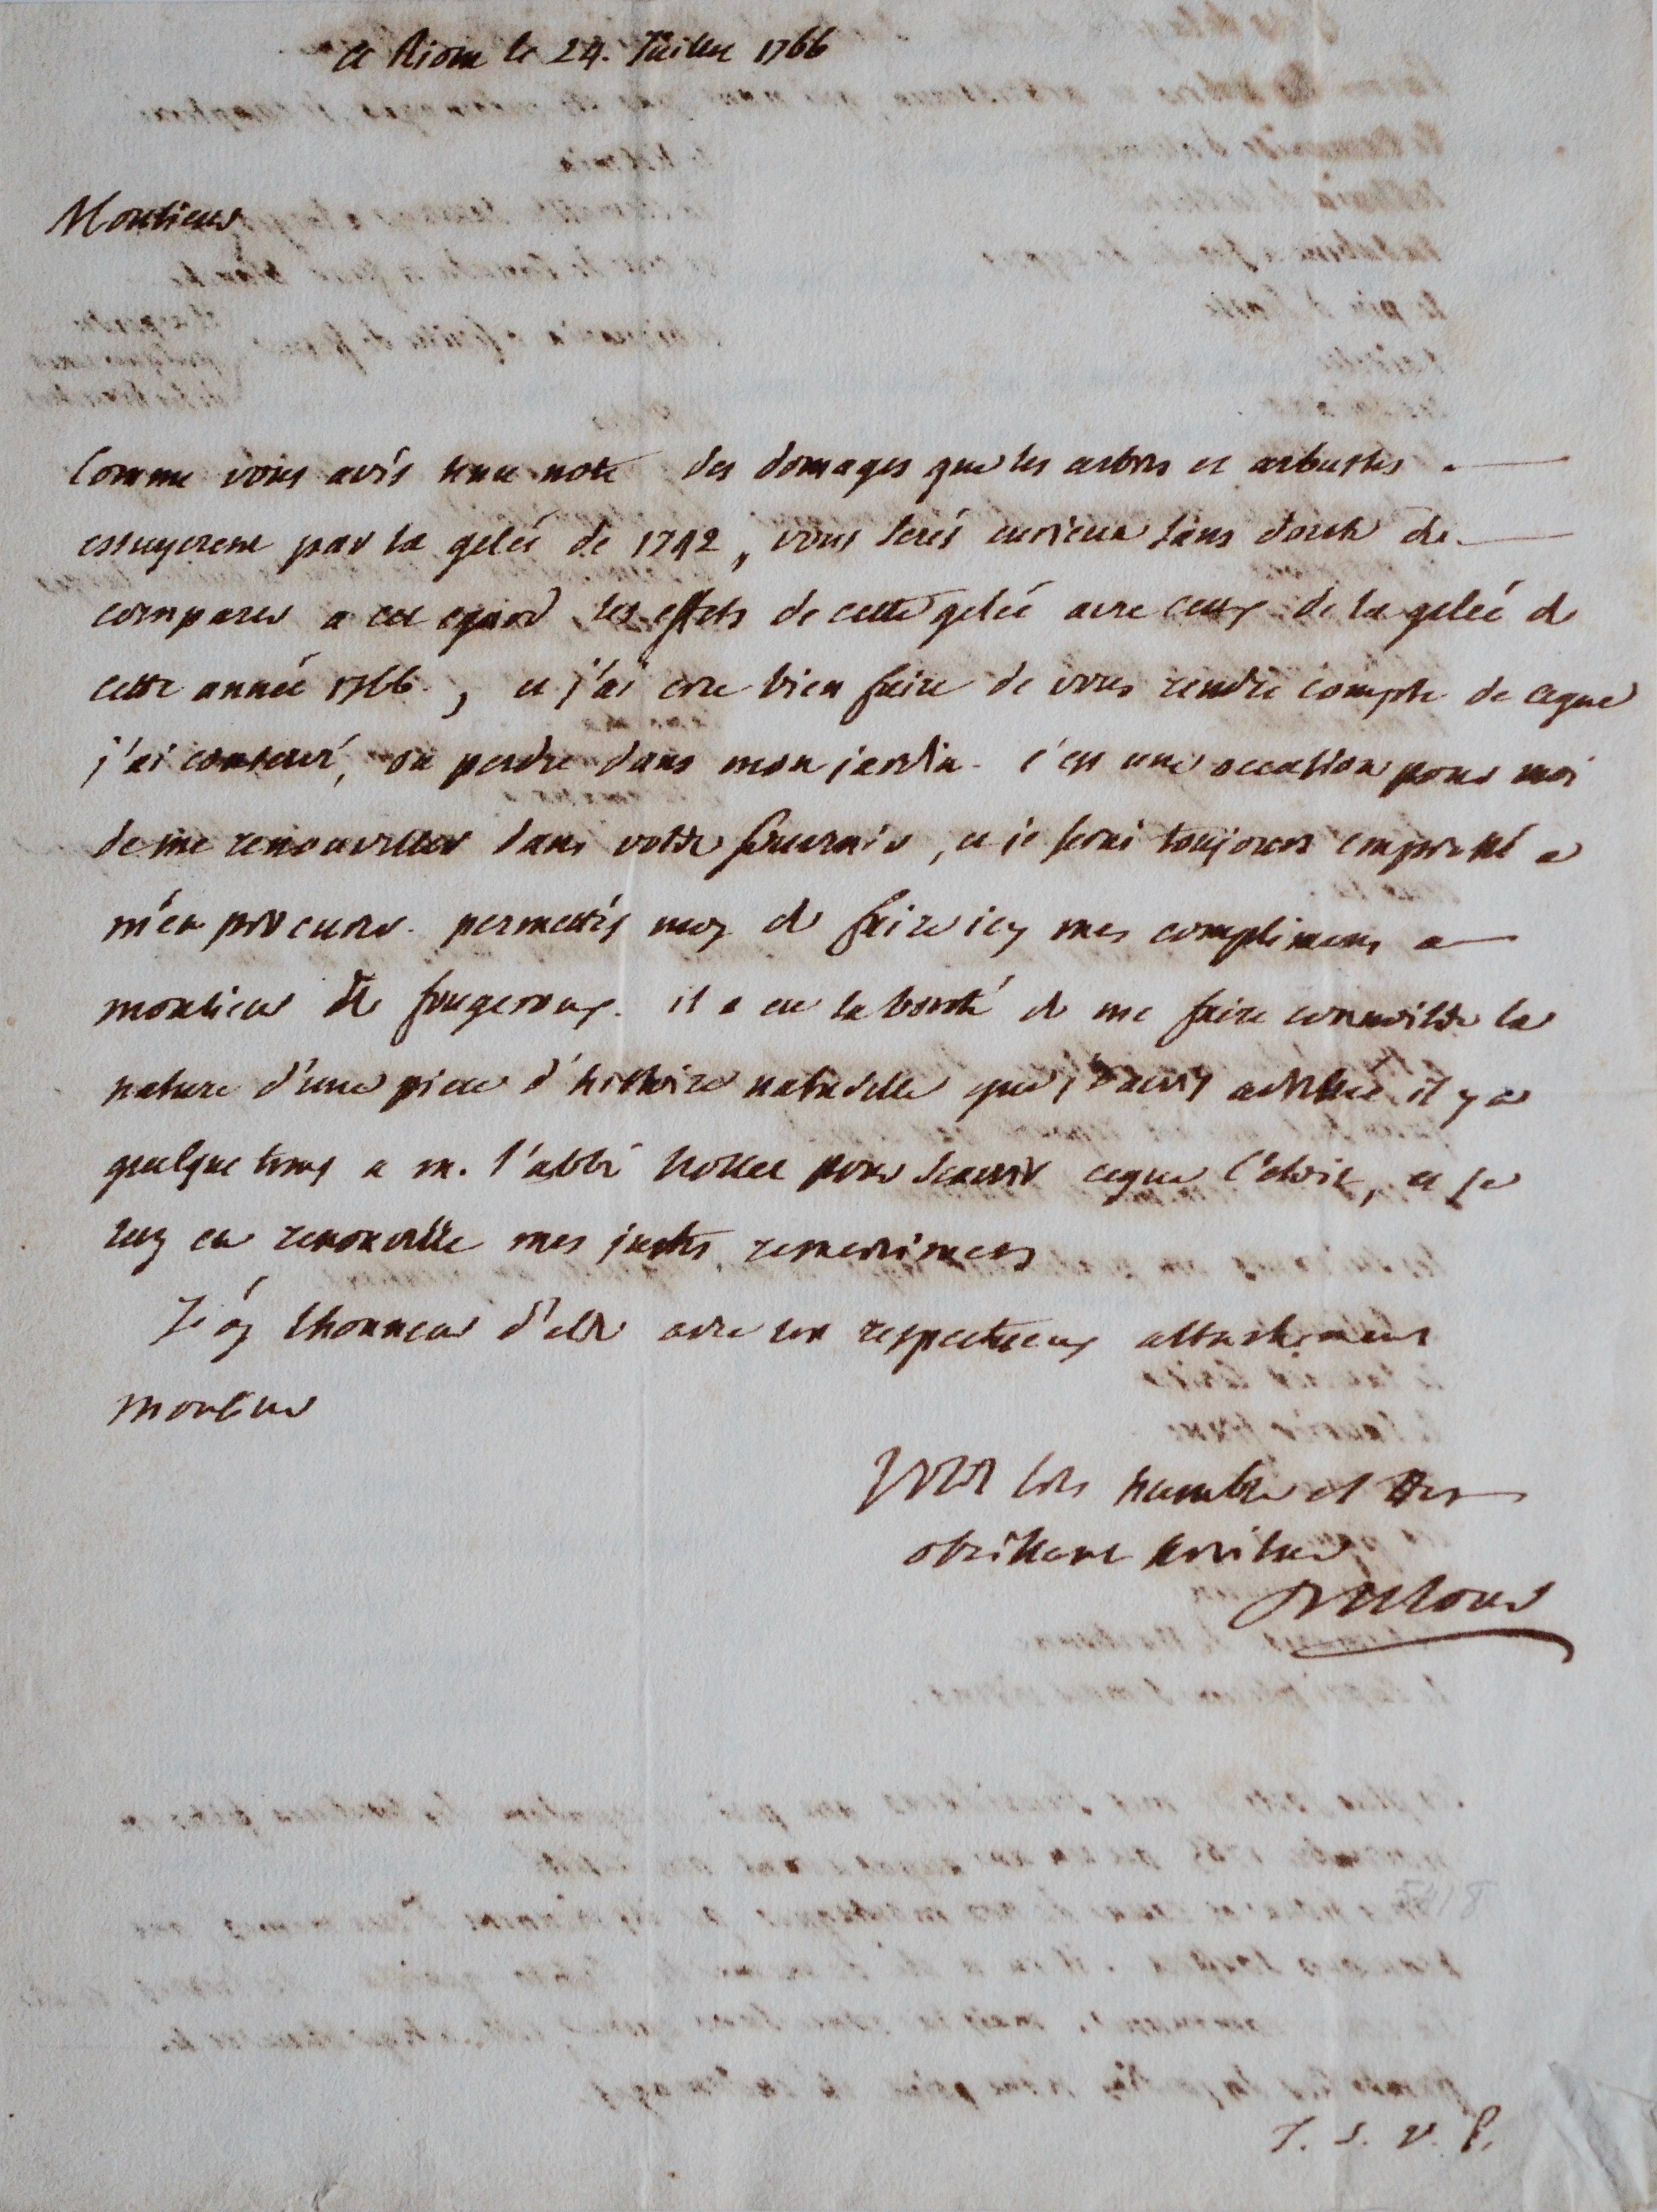 a Riom le 24. Juillet 1766
Monsieur
Comme vous avés tenu note des domages que les arbres et arbustes
essuyerent par la gelée de 1742, vous serés curieux sans doute de
comparer a cet egard les effets de cette gelée avec ceux de la gelée de
cette année 1766, et j'ai cru bien faire de vous rendre compte de ceque
j'ai conservé, ou perdu dans mon jardin. c'est une occassion pour moi
de me renouveller dans votre souvenir, et je serai toujours empressé a
m'en procurer. permettés moy de faire icy mes complimens a
monsieur de fougeroux. il a eu la bonté de me faire connoistre la
nature d'une piece d'histoire naturelle que j'avois adressée il y a
quelque tems a m. l'abbé nollet pour scavoir ceque c'etoit, et je
luy en renouvelle mes justes remercimens
J'ay l'honneur d'etre avec un respectueux attachement
monsieur
Votre tres humble et tres
obeissant serviteur
T. S. V. P.